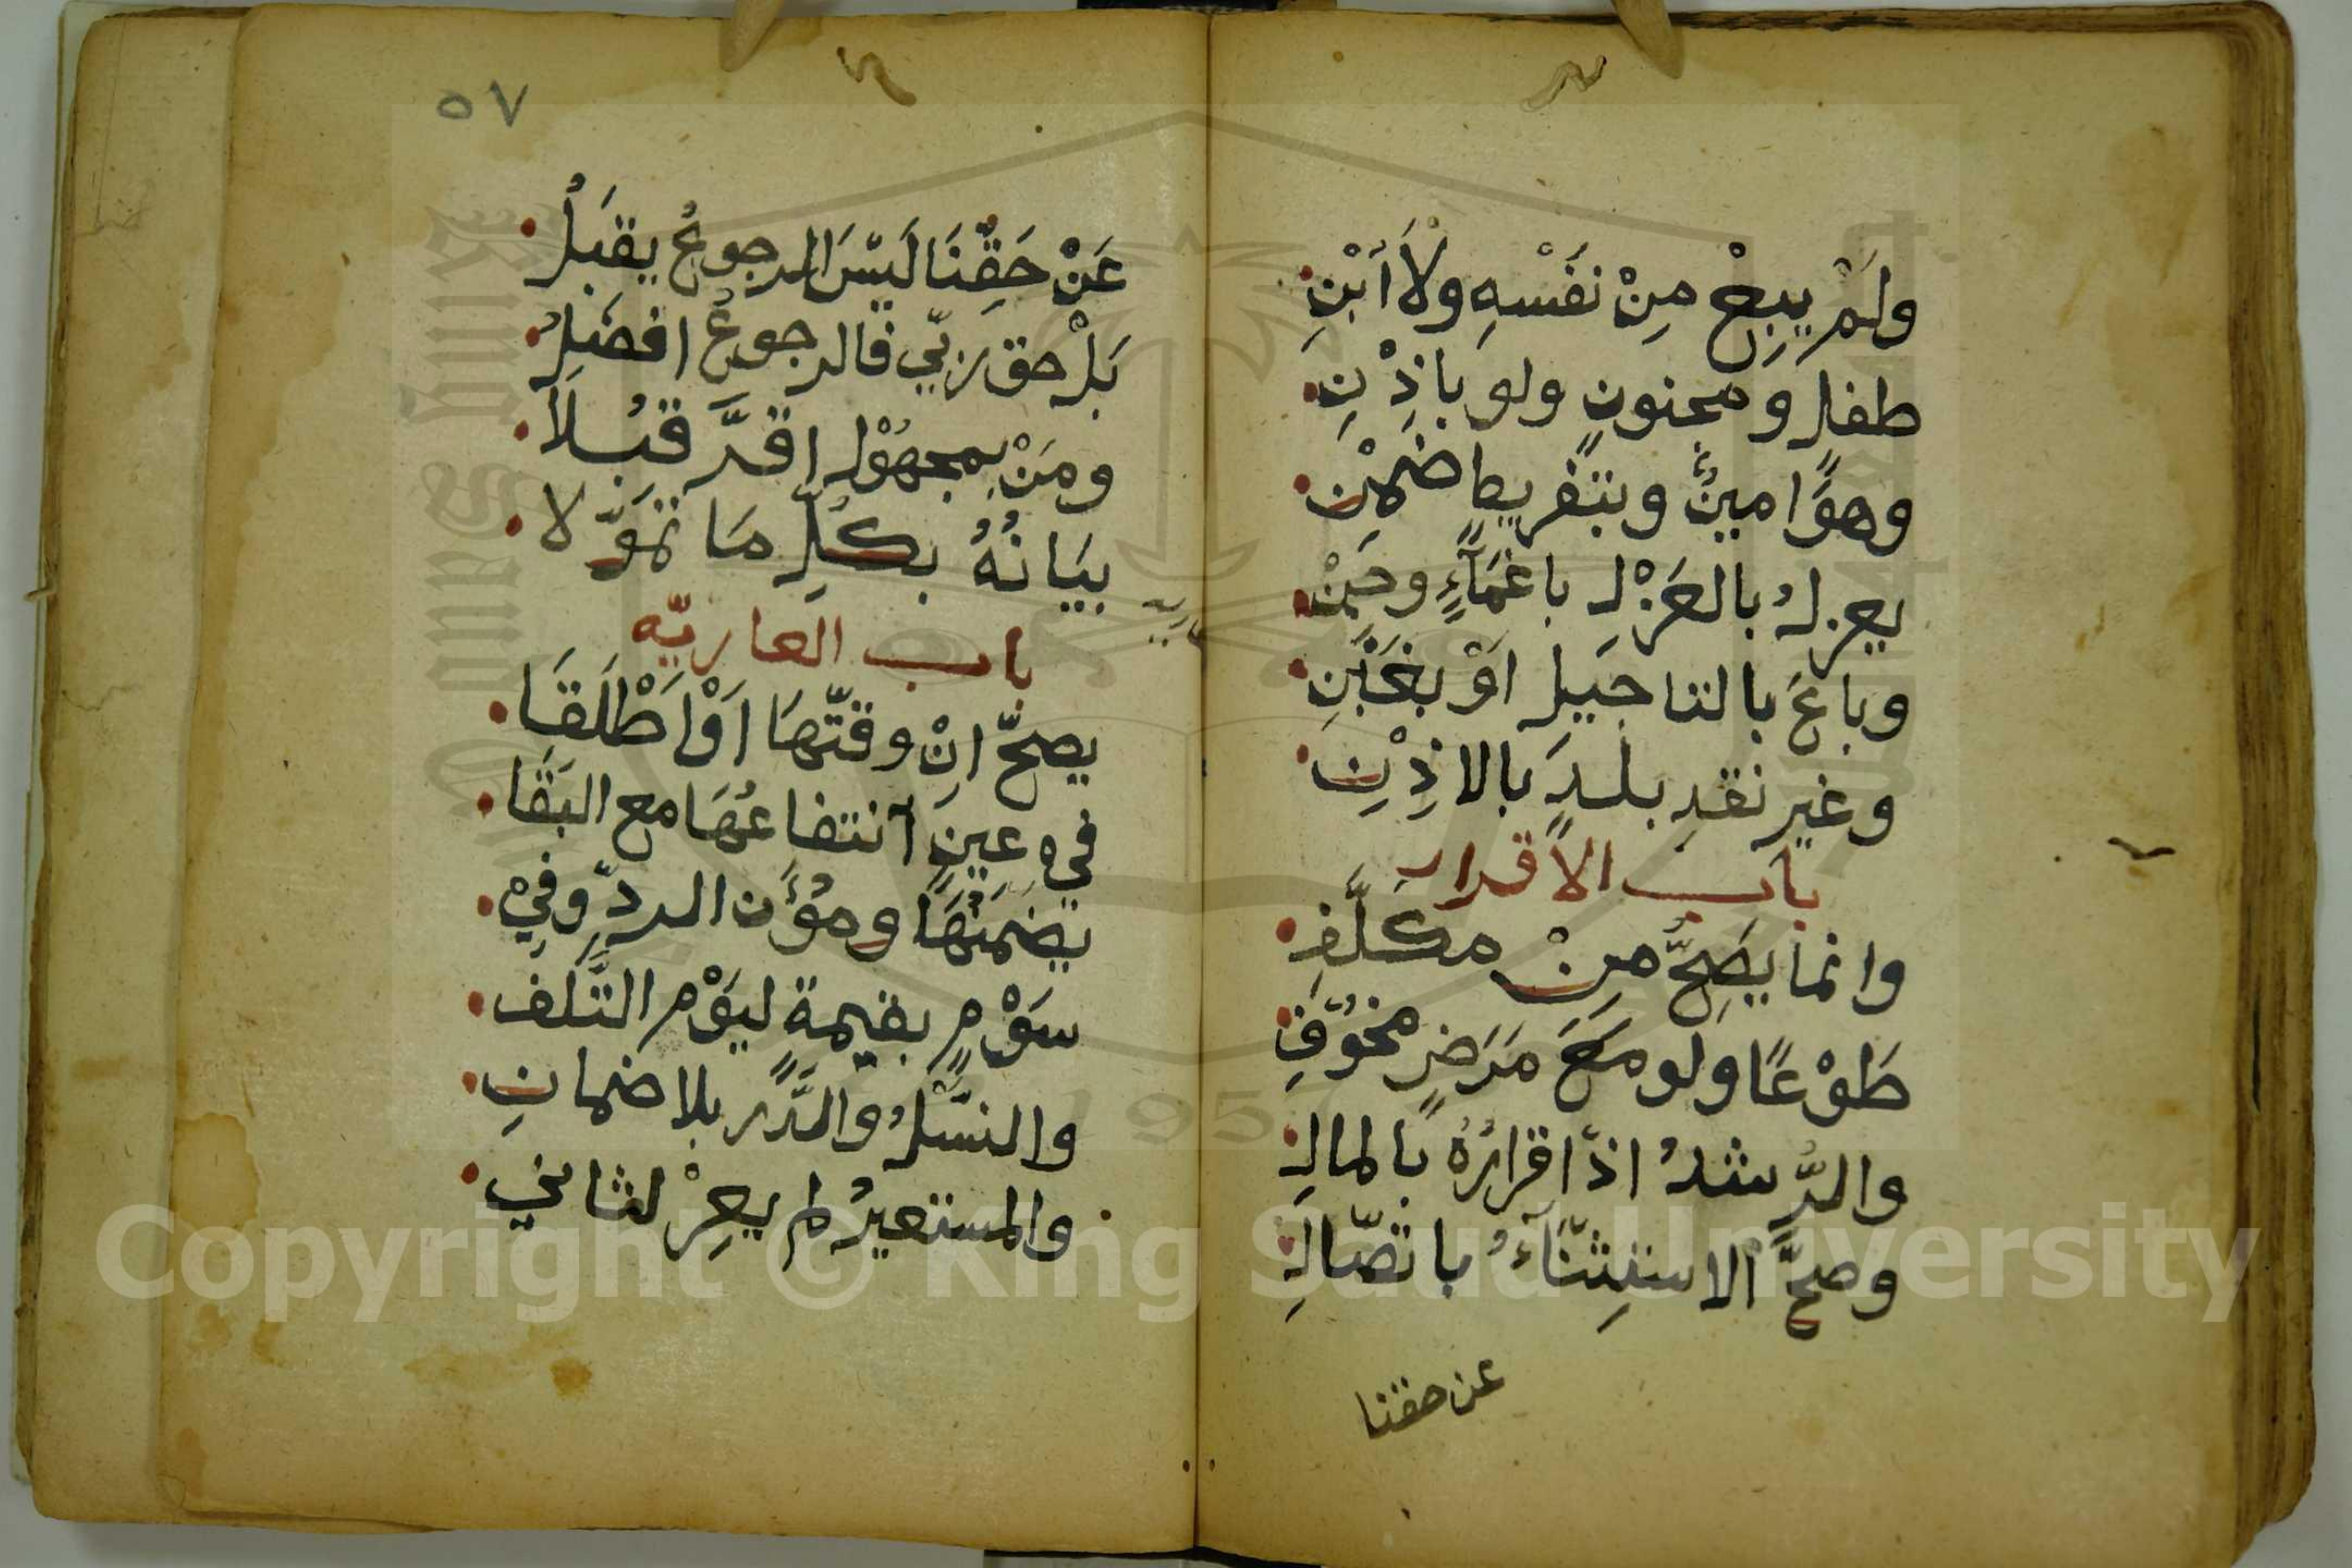 ولَمْ يبِعْ مِنْ نفَسْهِ ولاَ أبْنِ
طفل ومجنونٍ ولو باذِنْ
وهوَ امينٌ وبتفريطٍ ضمِنْ
يعزلُ بالعَزْلِ باغمَآءٍ وجِنْ
وباعَ بالتاجيل اوْ بغَبْنِ
وغير نقدِ بلدَ بالاذِنِ
باب الاقرار
وانما يصِحُّ مِنْ مكَلَّفِ
طَوْعًا ولو معَ مَرَضٍ مخوُفِ
والرُّشدُ اذ اقرارُهُ بالمالِ
وصحَّ الاستِثنَآءُ باتصّالِ
عن حقنا
٥٧
عَنْ حَقِّنَا لَيسَ الرجوعُ يقبَلُ
بَلْ حق ربّي فالرجوعُ افضَلُ
ومَنْ بمجهُوْلٍ اقرَّ قبُلاَ
بيَانُهُ بكُلِّ مَا تموَّلا
عارية
باب العاريّه
يصحّ انِْ وقتّهَا اوْ اَطْلَقَا
فيِ عينٍ آنتفاعُهَا مع البَقَا
يضمَنُهَا ومؤَن الردّ وفيِْ
سَوْمٍ بقيمة ليَوْم التَّلف
والنسَّلُْ والدَّر بلا ضمانِ
والمستعيرُ لم يعِرْ لثاني
Copyright © King Saud University
1957